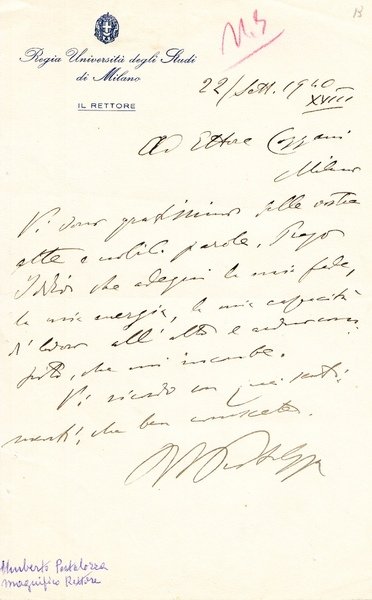 B
N.S
Regia Università degli Studi
di Milano
IL RETTORE
22/Sett. 1940
XVIII
Ad Ettore Cozzani
Milano
Vi sono gratissimo delle vostre
alte e nobili parole. Prego
Iddio che adegui la mia fede,
la mia energia, la mia capacità
di lavoro all'alto e arduo com-
pito, che mi incombe.
Vi ricordo con quei senti-
menti, che ben conoscete.
Umberto Pestalozza
magnifico Rettore